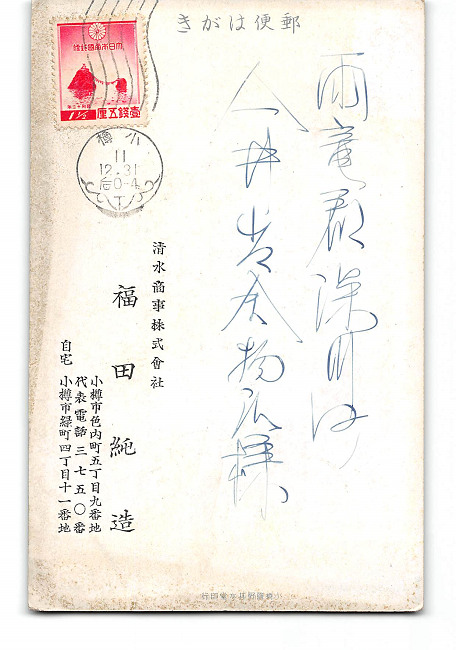 郵便はがき
大日本帝國郵便
壹錢五厘
1½
小樽
11
12.31
后0-4
雨竜郡深川町
今井
金物店様
清水商事株式會社
福田純造
小樽市色内町五丁目九番地
代表電話三七五〇番
自宅 小樽市緑町四丁目十一番地